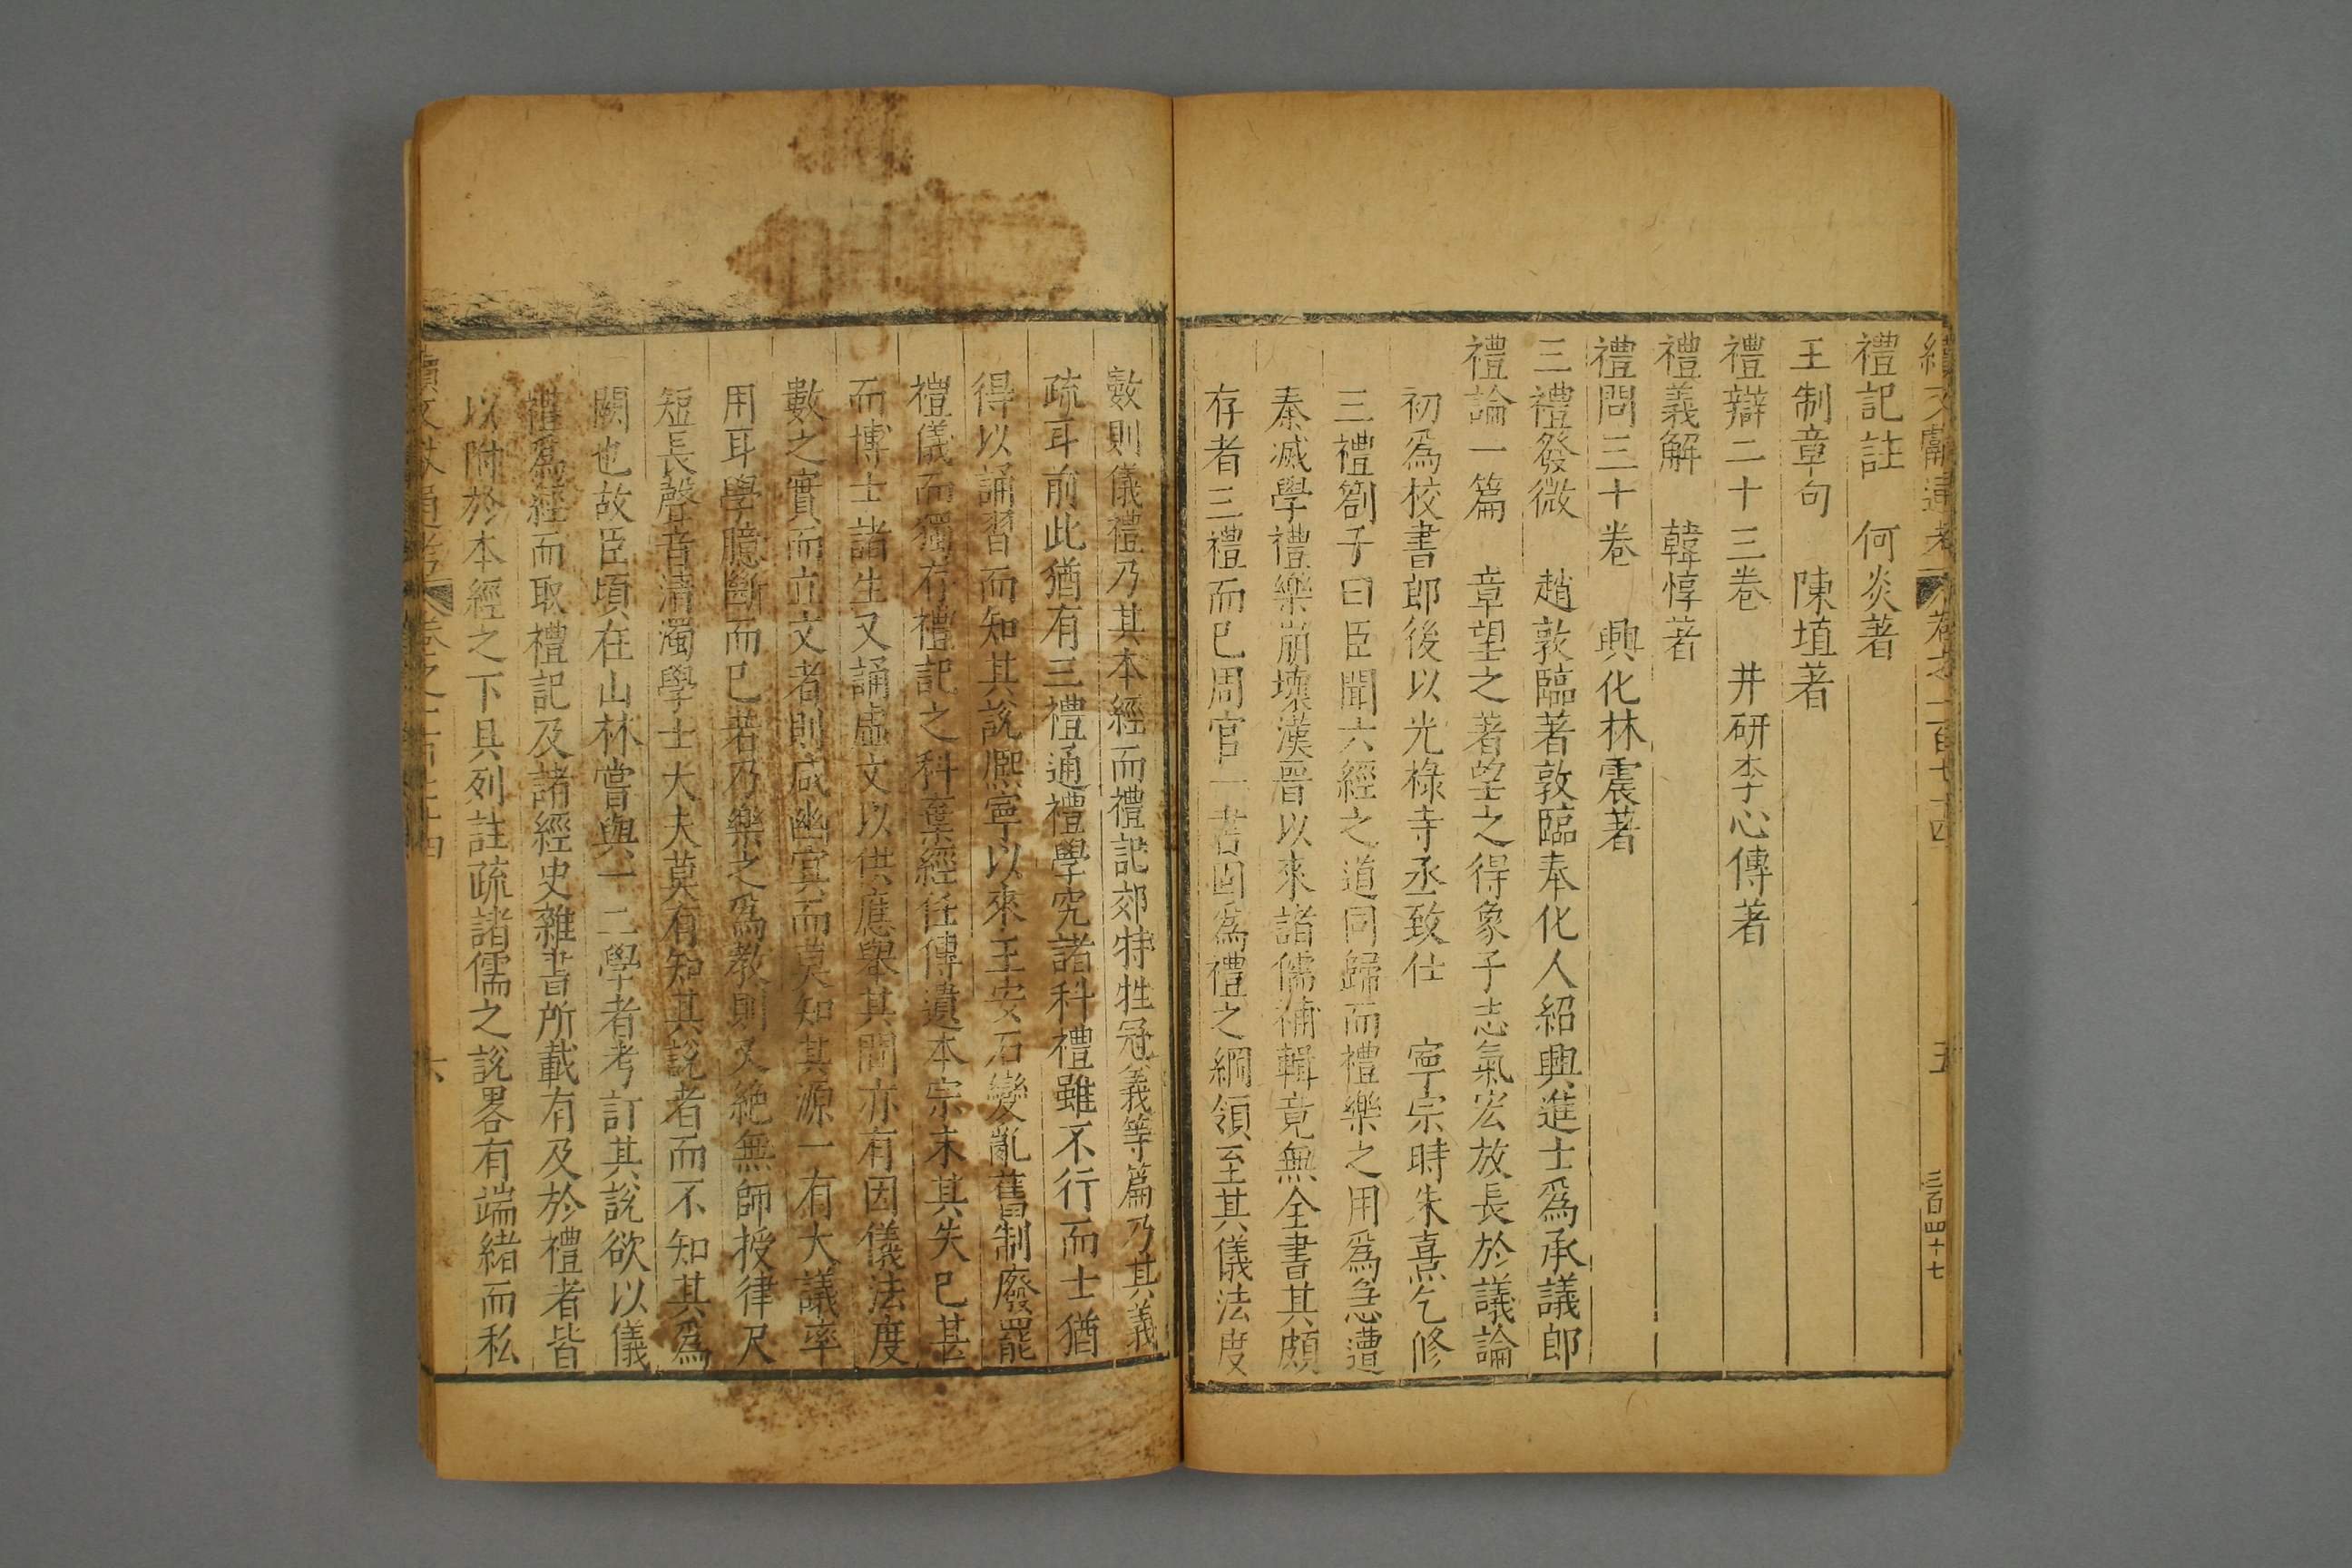 續文獻通考 卷之一百七十四 五 三百四十七
禮記註 何炎著
王制章句 陳埴著
禮辯二十三卷 井研李心傳著
禮義解 韓惇著
禮問三十卷 興化林震著
三禮發微 趙敦臨著敦臨奉化人紹興進士爲承議郎
禮論一篇 章望之著望之得象子志氣宏放長於議論
初爲校書郎後以光祿寺丞致仕 寧宗時朱熹乞修
三禮劄子曰臣聞六經之道同歸而禮樂之用爲急遭
秦滅學禮樂崩壞漢晉以來諸儒補輯竟無全書其頗
存者三禮而已周官一書固爲禮之綱領至其儀法度
數則儀禮乃其本經而禮記郊特牲冠義等篇乃其義
疏耳前此猶有三禮通禮學究諸科禮雖不行而士猶
得以誦習而知其說熈寧以來王安石變亂舊制廢罷
禮儀而獨存禮記之科棄經任傳遺本宗末其失已甚
而博士諸生又誦虛文以供應舉其間亦有因儀法度
數之實而立文者則咸幽冥而莫知其源一有大議率
用耳學臆斷而已若乃樂之爲教則又絶無師授律尺
短長聲音淸濁學士大夫莫有知其說者而不知其爲
闕也故臣頃在山林嘗與一二學者考訂其說欲以儀
禮爲經而取禮記及諸經史雜書所載有及於禮者皆
以附於本經之下具列註疏諸儒之說畧有端緒而私
續文獻通考 卷之一百七十四 六